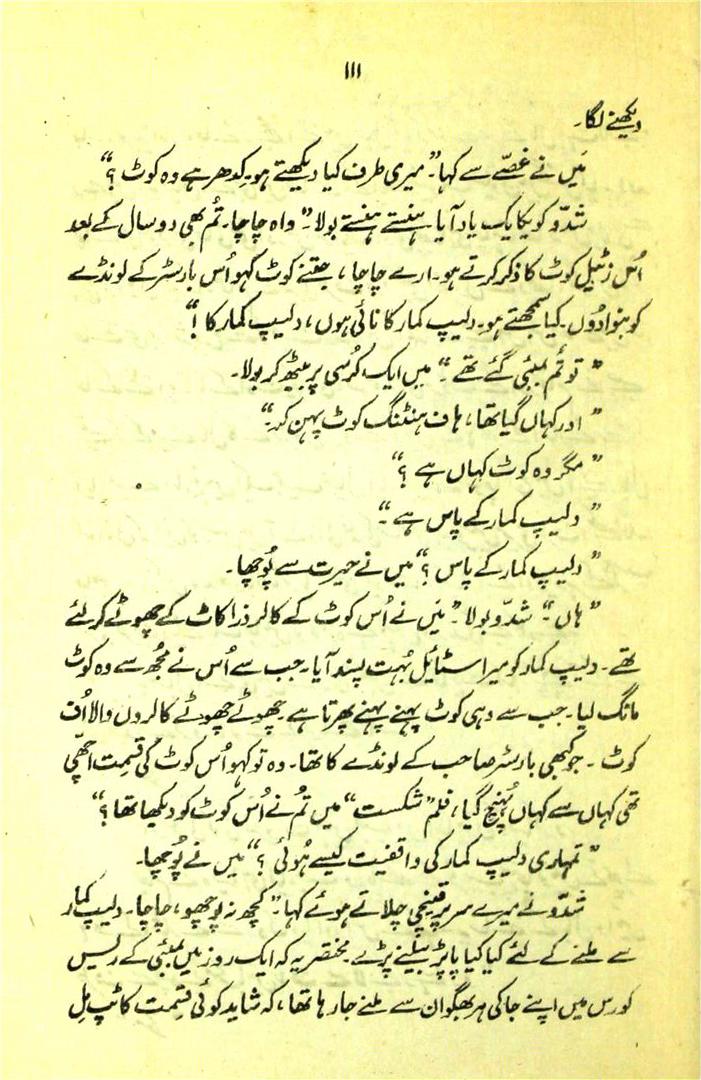 ۱۱۱
دیکھنے لگا۔
میں نے غصّے سے کہا۔ ”میری طرف کیا دیکھتے ہو۔ کِدھر ہے وہ کوٹ ؟“
شدّو کو یکایک یاد آیا ہنستے ہنستے بولا۔ ”واہ چاچا۔ تُم بھی دو سال کے بعد
اُس زٹیل کوٹ کا ذکر کرتے ہو۔ ارے چاچا ، جتنے کوٹ کہو اُس بارسٹر کے لونڈے
کو بنوا دُوں۔ کیا سمجھتے ہو۔ دلیپ کمار کا نائی ہوں ، دلیپ کمار کا !“
” تو تُم بمبئی گئے تھے۔“ میں ایک کُرسی پر بیٹھ کر بولا۔
” اور کہاں گیا تھا ، ہاف ہنٹنگ کوٹ پہن کر۔“
” مگر وہ کوٹ کہاں ہے ؟“
” دلیپ کمار کے پاس ہے۔“
” دلیپ کمار کے پاس ؟“ میں نے حیرت سے پُوچھا۔
” ہاں“ شدّو بولا۔ ”میَں نے اُس کوٹ کے کالر ذرا کاٹ کے چھوٹے کر لئے
تھے۔ دلیپ کمار کو میرا سٹائیل بُہت پسند آیا۔ جب سے اُس نے مُجھ سے وہ کوٹ
مانگ لیا۔ جب سے وہی کوٹ پہنے پہنے پھرتا ہے۔ چھوٹے چھوٹے کالروں والا اُف
کوٹ ۔ جو کبھی بارسٹر صاحب کے لونڈے کا تھا۔ وہ تو کہو اُس کوٹ کی قِسمت اچھّی
تھی کہاں سے کہاں پُہنچ گیا ، فلم ”شکست“ میں تُم نے اُس کوٹ کو دیکھا تھا ؟“
” تمہاری دلیپ کمار کی واقفیت کیسے ہُوئی ؟“ میں نے پُوچھا۔
شدّو نے میرے سر پر قینچی چلاتے ہوئے کہا۔ ”کچھ نہ پوچھو ، چاچا۔ دلیپ کمار
سے ملنے کے لئے کیا کیا پاپڑ بیلنے پڑے۔ مختصر یہ کہ ایک روز میں بمبئی کے ریس
کورس میں اپنے جاکی ہر بھگوان سے ملنے جا رہا تھا ، کہ شاید کوئی قِسمت کا ٹپ مِل